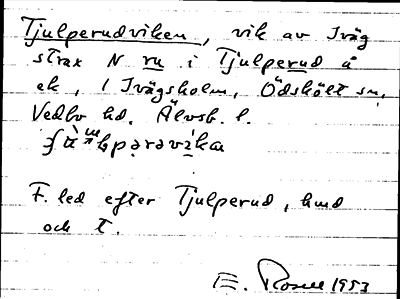 Tjulperudviken, vik av Iväg
strax N ru i Tjulperud å
ek, 1 Ivägsholm, Ödskölt sn,
Vedbo hd. Älvsb. l.
F. led efter Tjulperud, hmd
och t.
E. Rosell 1953